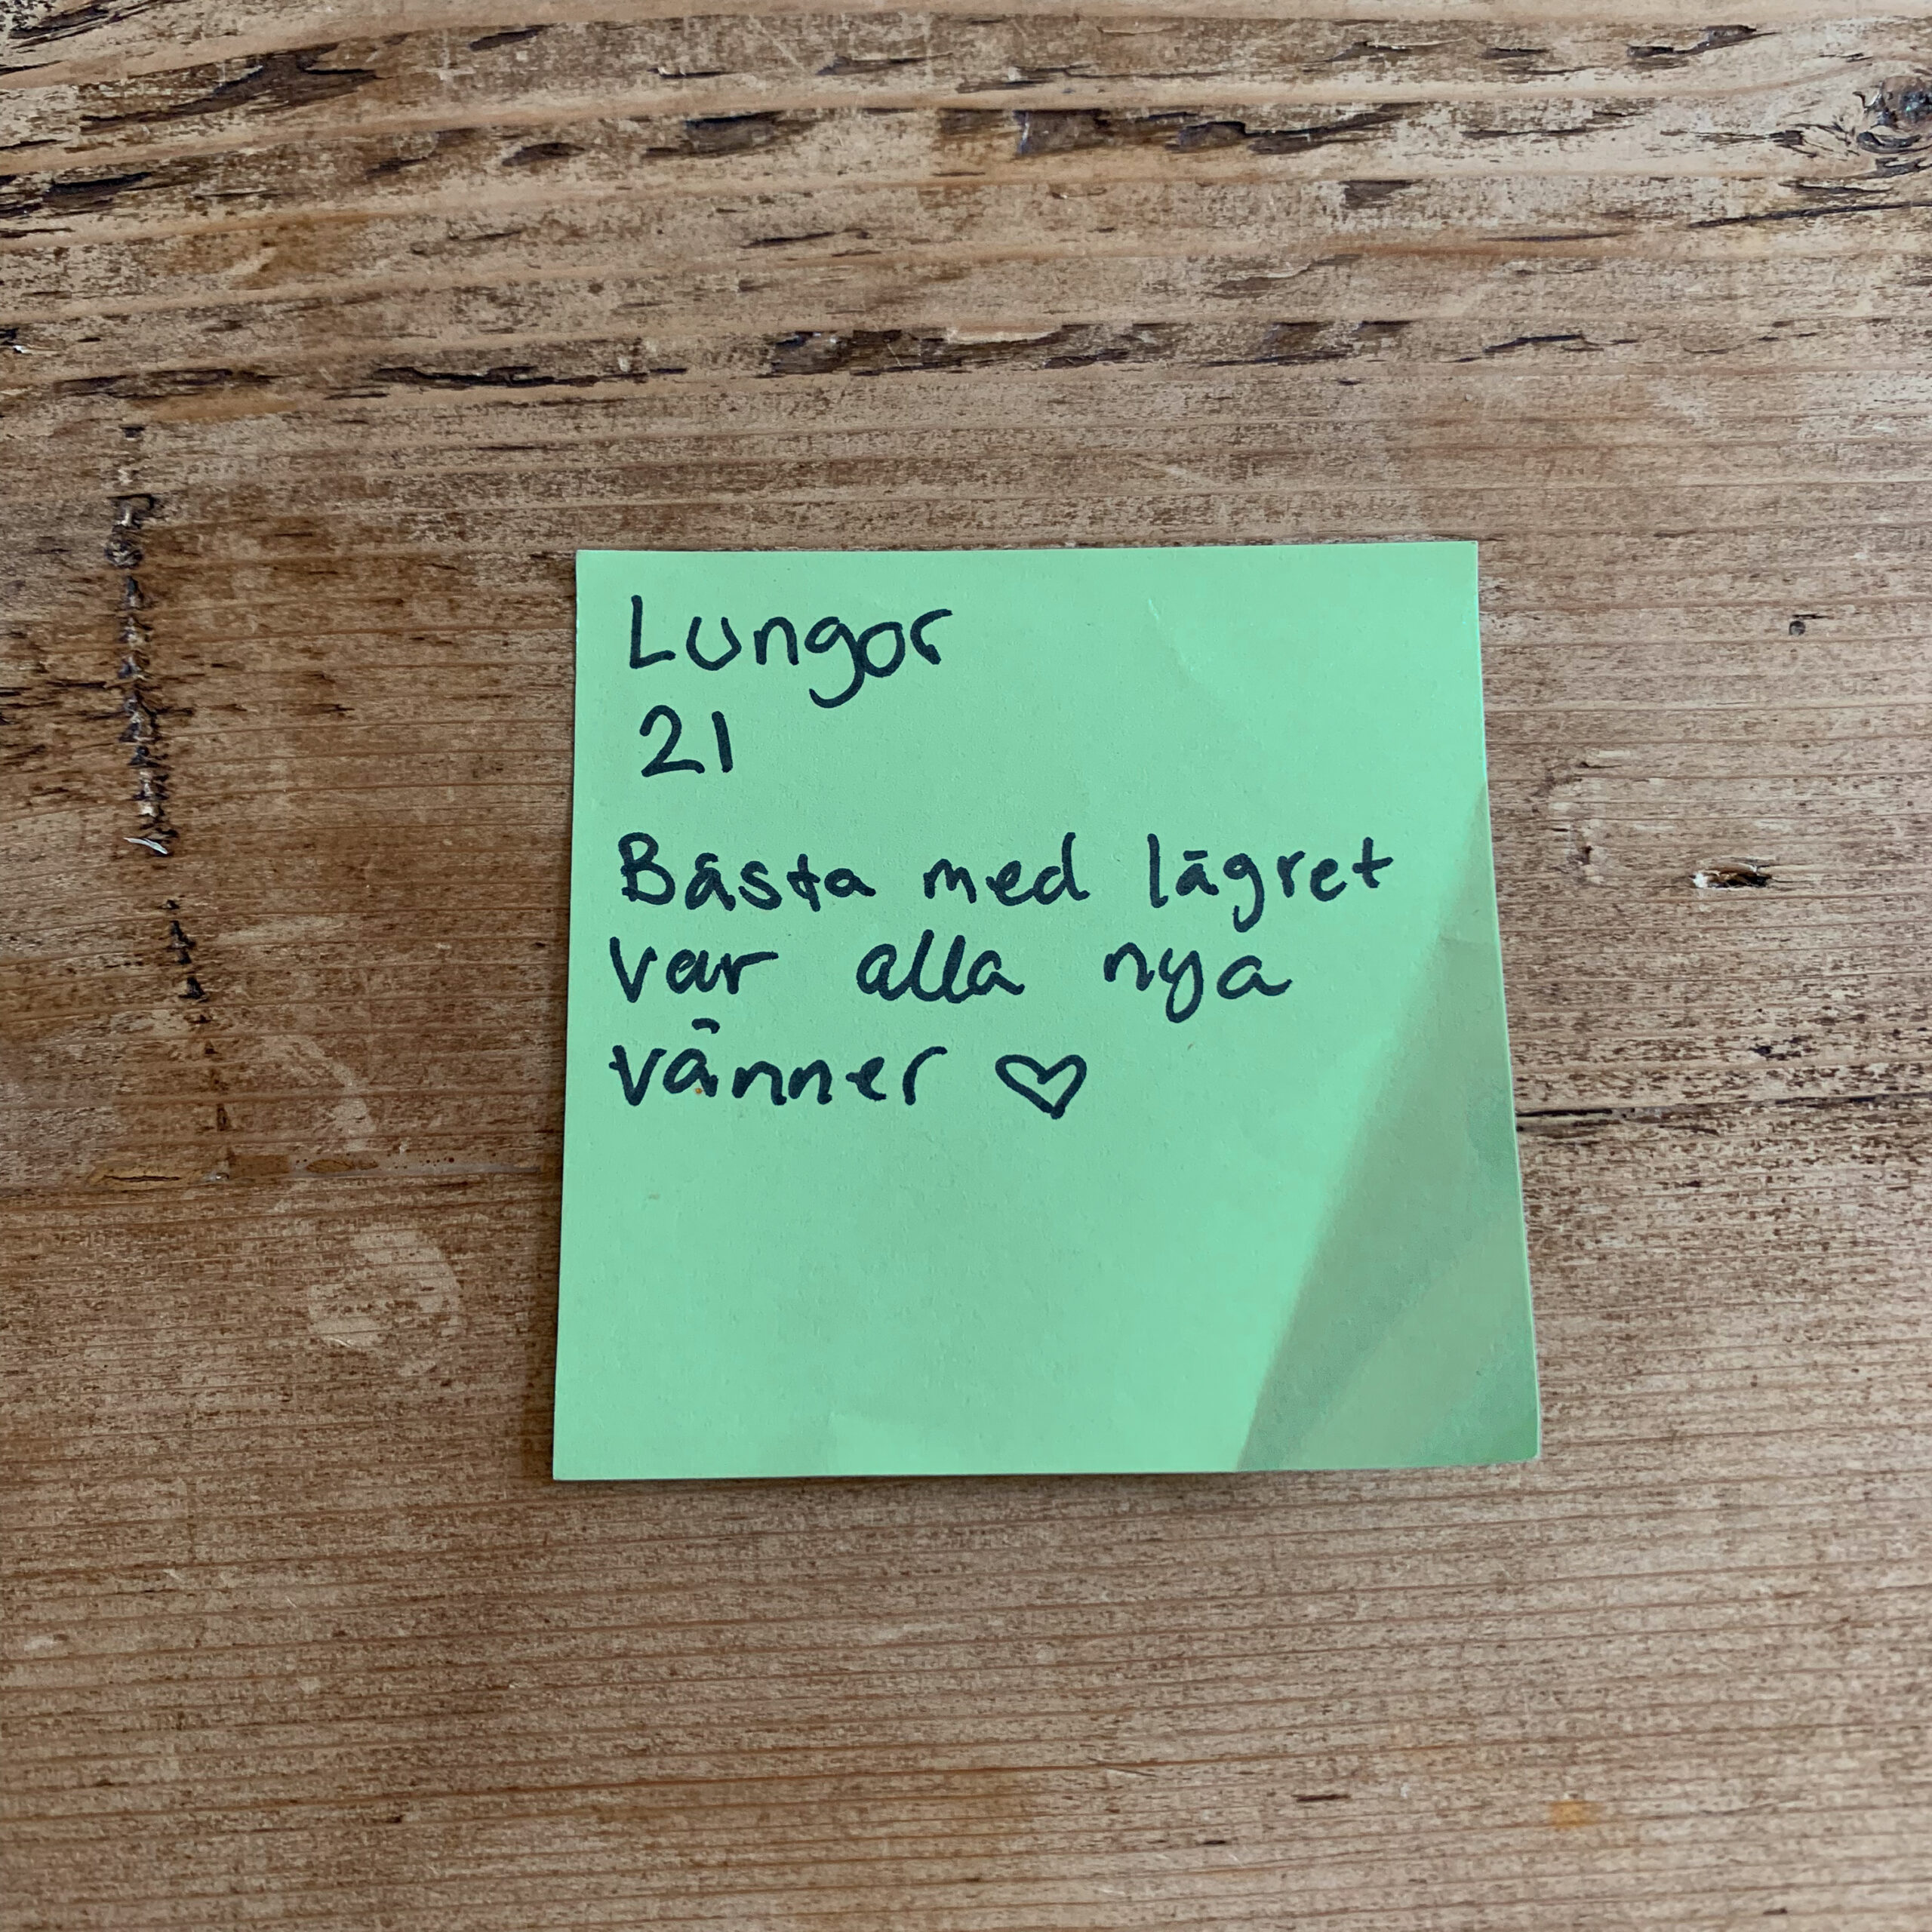 Lungor
21
Bästa med lägret
var alla nya
vänner ♡